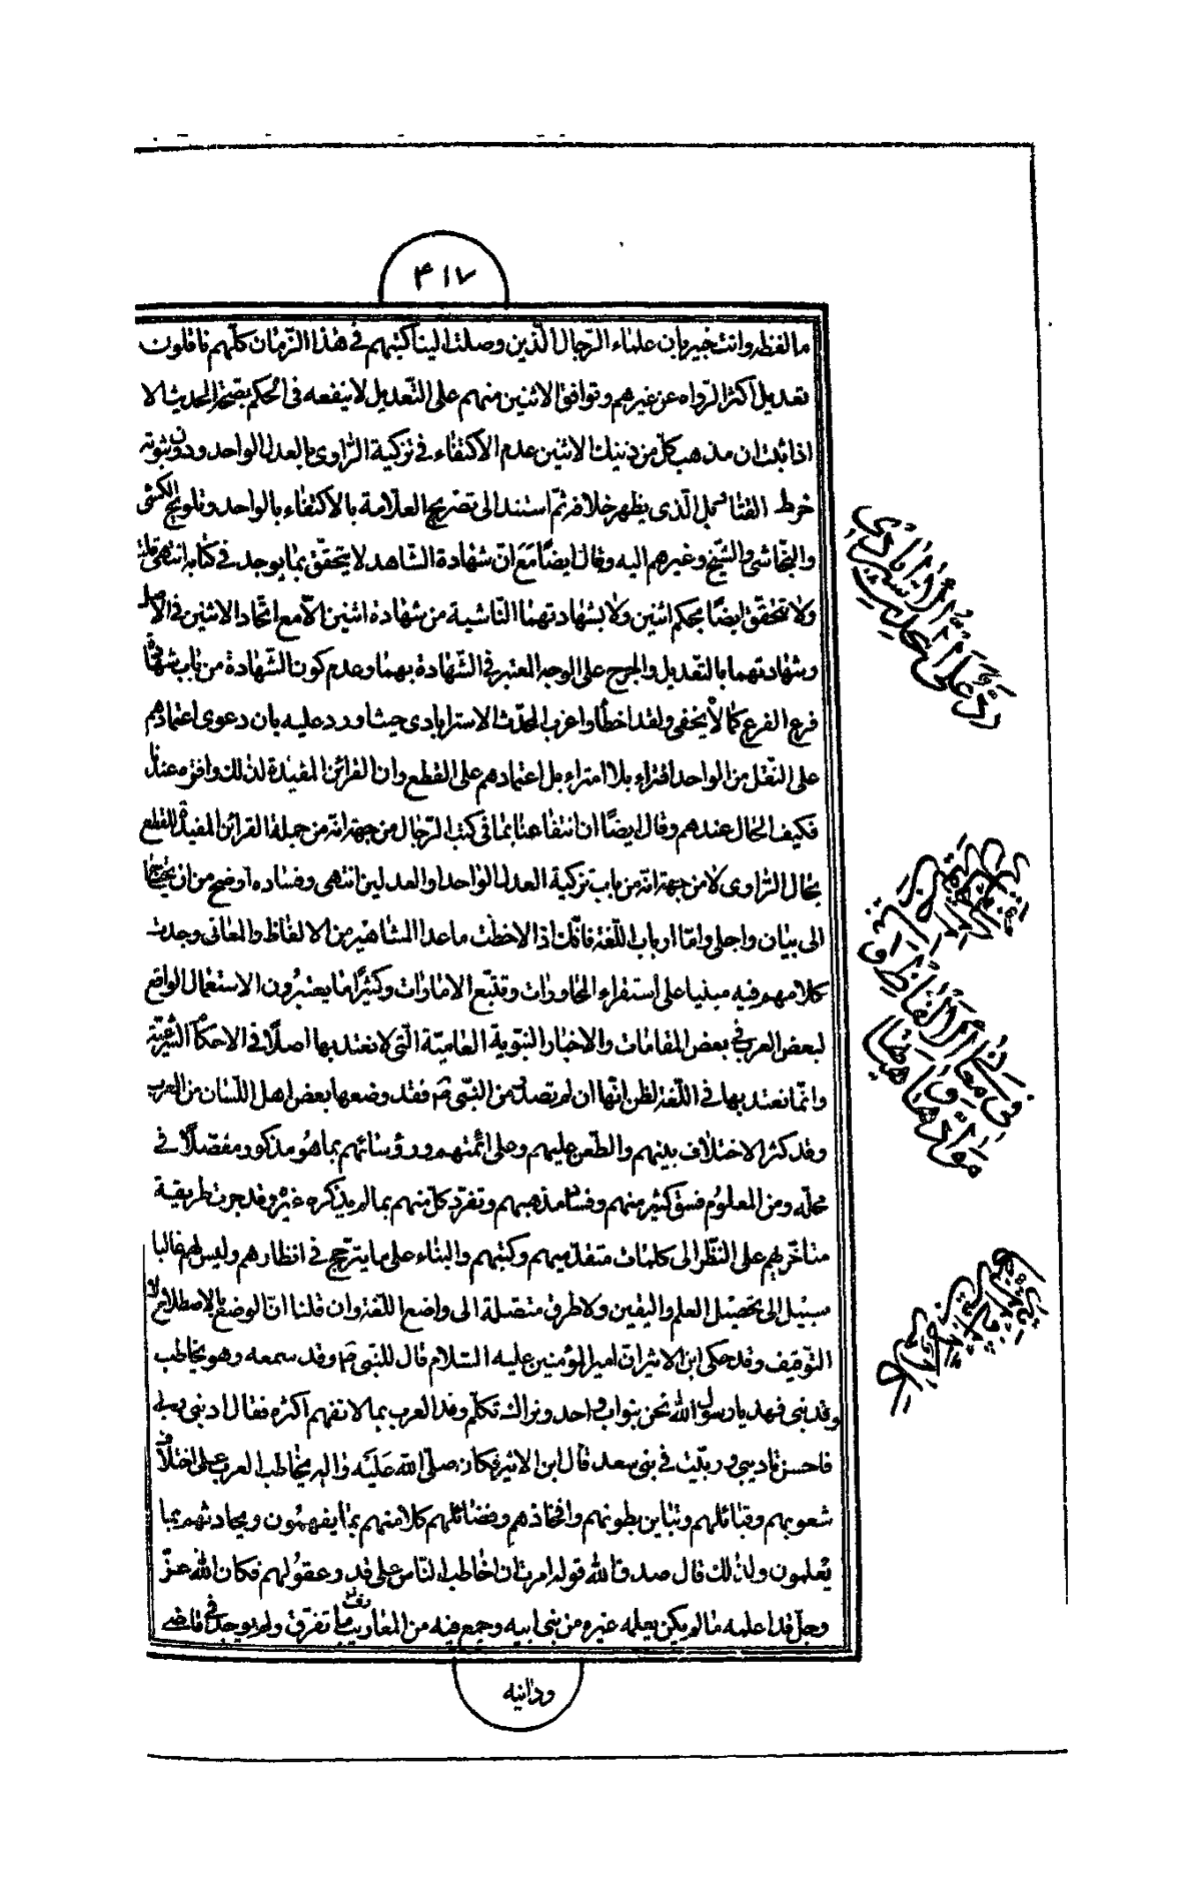 ٤١٧
ما لفظه وانت خبير بان علماء الرجال الذين وصلت الينا كتبهم في هذا الزمان كلهم ناقلون
تعديل اكثر الرواه عن غيرهم وتوافق الاثنين منهم على التعديل لا ينفعه في الحكم بصحة الحديث الا
اذا ثبت ان مذهب كل من ذينك الاثنين عدم الاكتفاء في تزكية الراوى بالعدل الواحد ودون ثبوته
خرط القتاد بل الذى يظهر خلافه ثم استند الى تصريح العلامة بالاكتفاء بالواحد وتلويح الكشى
والنجاشى والشيخ وغيرهم اليه وقال ايضا مع ان شهادة الشاهد لا يتحقق بما يوجد في كتابه انتهى قلت
ولا تتحقق ايضا بحكم اثنين ولا بشهادتهما الناشية من شهادة اثنين الا مع اتحاد الاثنين في الاصل
وشهادتهما بالتعديل والجرح على الوجه المعتبر في الشهادة بهما وعدم كون الشهادة من باب شهادة
فرع الفرع كما لا يخفى ولقد اخطأ واغرب المحدث الاسترابادى حيث اورد عليه بان دعوى اعتمادهم
على النقل من الواحد افتراء بلا امتراء بل اعتمادهم على القطع وان القرائن المفيدة لذلك وافرة عندنا
فكيف الحال عندهم وقال ايضا ان انتفاعنا بما في كتب الرجال من جهة انه من جملة القرائن المفيدة للقطع
بحال الراوى لا من جهة انه من باب تزكية العدل الواحد او العدلين انتهى وفساده اوضح من ان يحتاج
الى بيان واجلى واما ارباب اللغة فانك اذا لاحظت ما عدا المشاهير من الالفاظ والمعانى وجدت
كلامهم فيه مبنيا على استقراء المحاورات وتتبع الامارات وكثيرا ما يعتبرون الاستعمال الواقع
لبعض العرب في بعض المقامات والاخبار النبوية العامية التى لا نعتد بها اصلا في الاحكام الشرعية
وانما نعتد بها في اللغة لظن انها ان لم تصدر من النبى ص فقد وضعها بعض اهل اللسان من العرب
وقد كثر الاختلاف بينهم والطعن عليهم وعلى ائمتهم ورؤسائهم بما هو مذكور مفصلا في
محله ومن المعلوم فسق كثير منهم وفساد مذهبهم وتفرد كل منهم بما لم يذكره غيره وقد جرت طريقة
متأخريهم على النظر الى كلمات متقدميهم وكتبهم والبناء على ما يترجح في انظارهم وليس لهم غالبا
سبيل الى تحصيل العلم واليقين ولا طرق متصلة الى واضع اللغة وان قلنا ان الوضع بالاصطلاح لا
التوقيف وقد حكى ابن الاثير ان امير المؤمنين عليه السلام قال للنبى ص وقد سمعه وهو يخاطب
وفد بنى فهد يا رسول الله نحن بنو اب واحد ونراك تكلم وفد العرب بما لا نفهم اكثره فقال ادبنى ربى
فاحسن تاديبى وربيت في بنى سعد قال ابن الاثير فكان صلى الله عليه واله يخاطب العرب على اختلاف
شعوبهم وقبائلهم وتباين بطونهم وافخاذهم وفصائلهم كلا منهم بما يفهمون ويحادثهم بما
يعلمون ولذلك قال صدق الله قوله امرت ان اخاطب الناس على قدر عقولهم فكان الله عز
وجل قد اعلمه ما لم يكن يعلمه غيره من بنى ابيه وجمع فيه من المعارف ما تفرق ولم يوجد في قاصى
ودانيه
رد على الاسترابادي
في معانى الالفاظ و